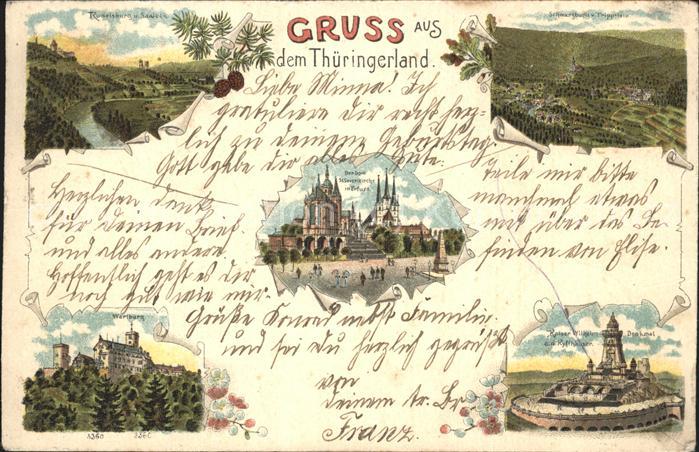 Rudelsburg u. Saaleck
GRUSS AUS
dem Thüringerland.
Schwarzburg v. Trippstein
Liebe Minna! Ich
gratuliere dir recht herz-
lich zu deinem Geburtstag.
Gott gebe dir alles Gute.
Der Dom
St. Severikirche
in Erfurt
Herzlichen Dank
für deinen Brief
und alles andere.
Hoffentlich geht es dir
noch gut wie mir.
Teile mir bitte
manchmal etwas
mit über das Be-
finden von Elise.
Grüße Konrad nebst Familie.
und sei du herzlich gegrüßt
von
deinem tr. Br
Franz.
Wartburg
Kaiser Wilhelm Denkmal
a.d. Kyffhäuser.